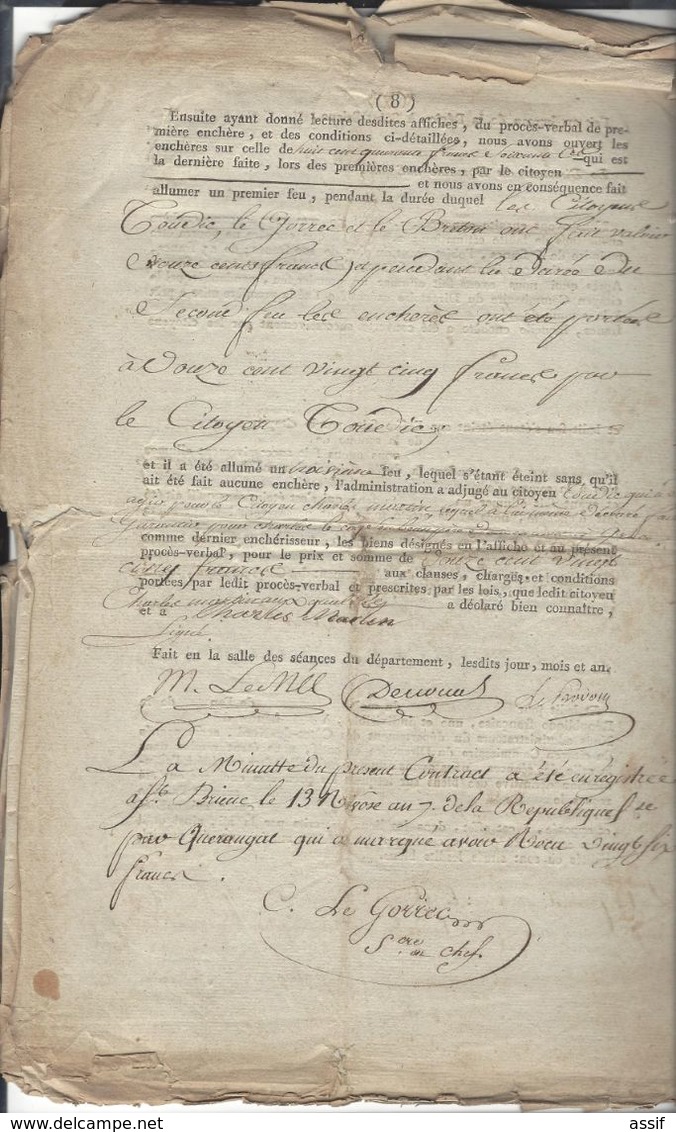 ( 8 )
Ensuite ayant donné lecture desdites affiches, du procès-verbal de pre-
mière enchère, et des conditions ci-détaillées, nous avons ouvert les
enchères sur celle de huit cent quarante francs soixante c. qui est
la dernière faite, lors des premières enchères, par le citoyen
et nous avons en conséquence fait
allumer un premier feu, pendant la durée duquel les Citoyens
Toudic, le Gorrec et le Breton ont fait valoir
douze cens francs, et pendant la durée du
Second feu les enchères ont été portées
à Douze cent vingt cinq francs par
le Citoyen Toudic,
et il a été allumé un troisième feu, lequel s'étant éteint sans qu'il
ait été fait aucune enchère, l'administration a adjugé au citoyen Toudic qui a
agir pour le Citoyen Charles martin
comme dernier enchérisseur, les biens désignés en l'affiche et au présent
procès-verbal, pour le prix et somme de Douze cent vingt
cinq francs aux clauses, charges et conditions
portées par ledit procès-verbal et prescrites par les lois, que ledit citoyen
Charles martin a déclaré bien connaître,
et a Charles Martin
Signé
Fait en la salle des séances du département, lesdits jour, mois et an.
M. Le Mée Denoual
La Minutte du present Contract a été enregistrée
a St. Brieuc le 13 Nivôse an 7 de la Republique
par Querangal qui a marqué avoir Recu vingt six
francs.
C. Le Gorrec
S.cre en chef
assif